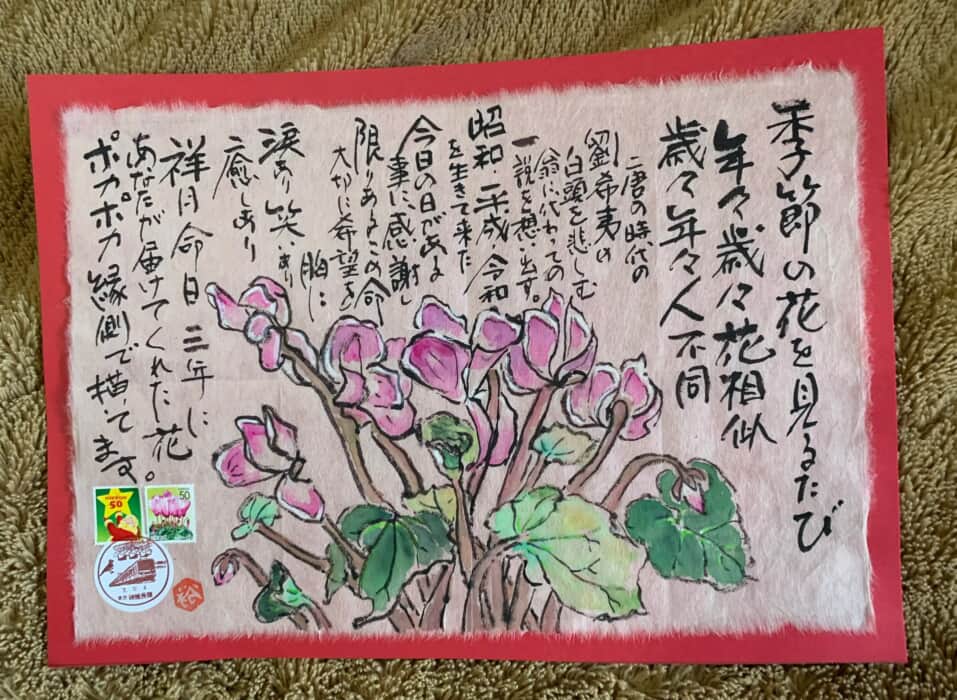 季節の花を見るたび
年々歳々花相似
歳々年々人不同
唐の時代の
劉希夷の
白頭を悲しむ
翁に代わっての
一説を想い出す。
昭和・平成・令和
を生きて来た
今日の日がある
事に感謝し
限りあるこの命
大切に希望を
胸に
涙あり笑いあり
癒しあり
祥月命日 三年に
あなたが届けてくれた花。
ポカポカ縁側で描いてます
50
50